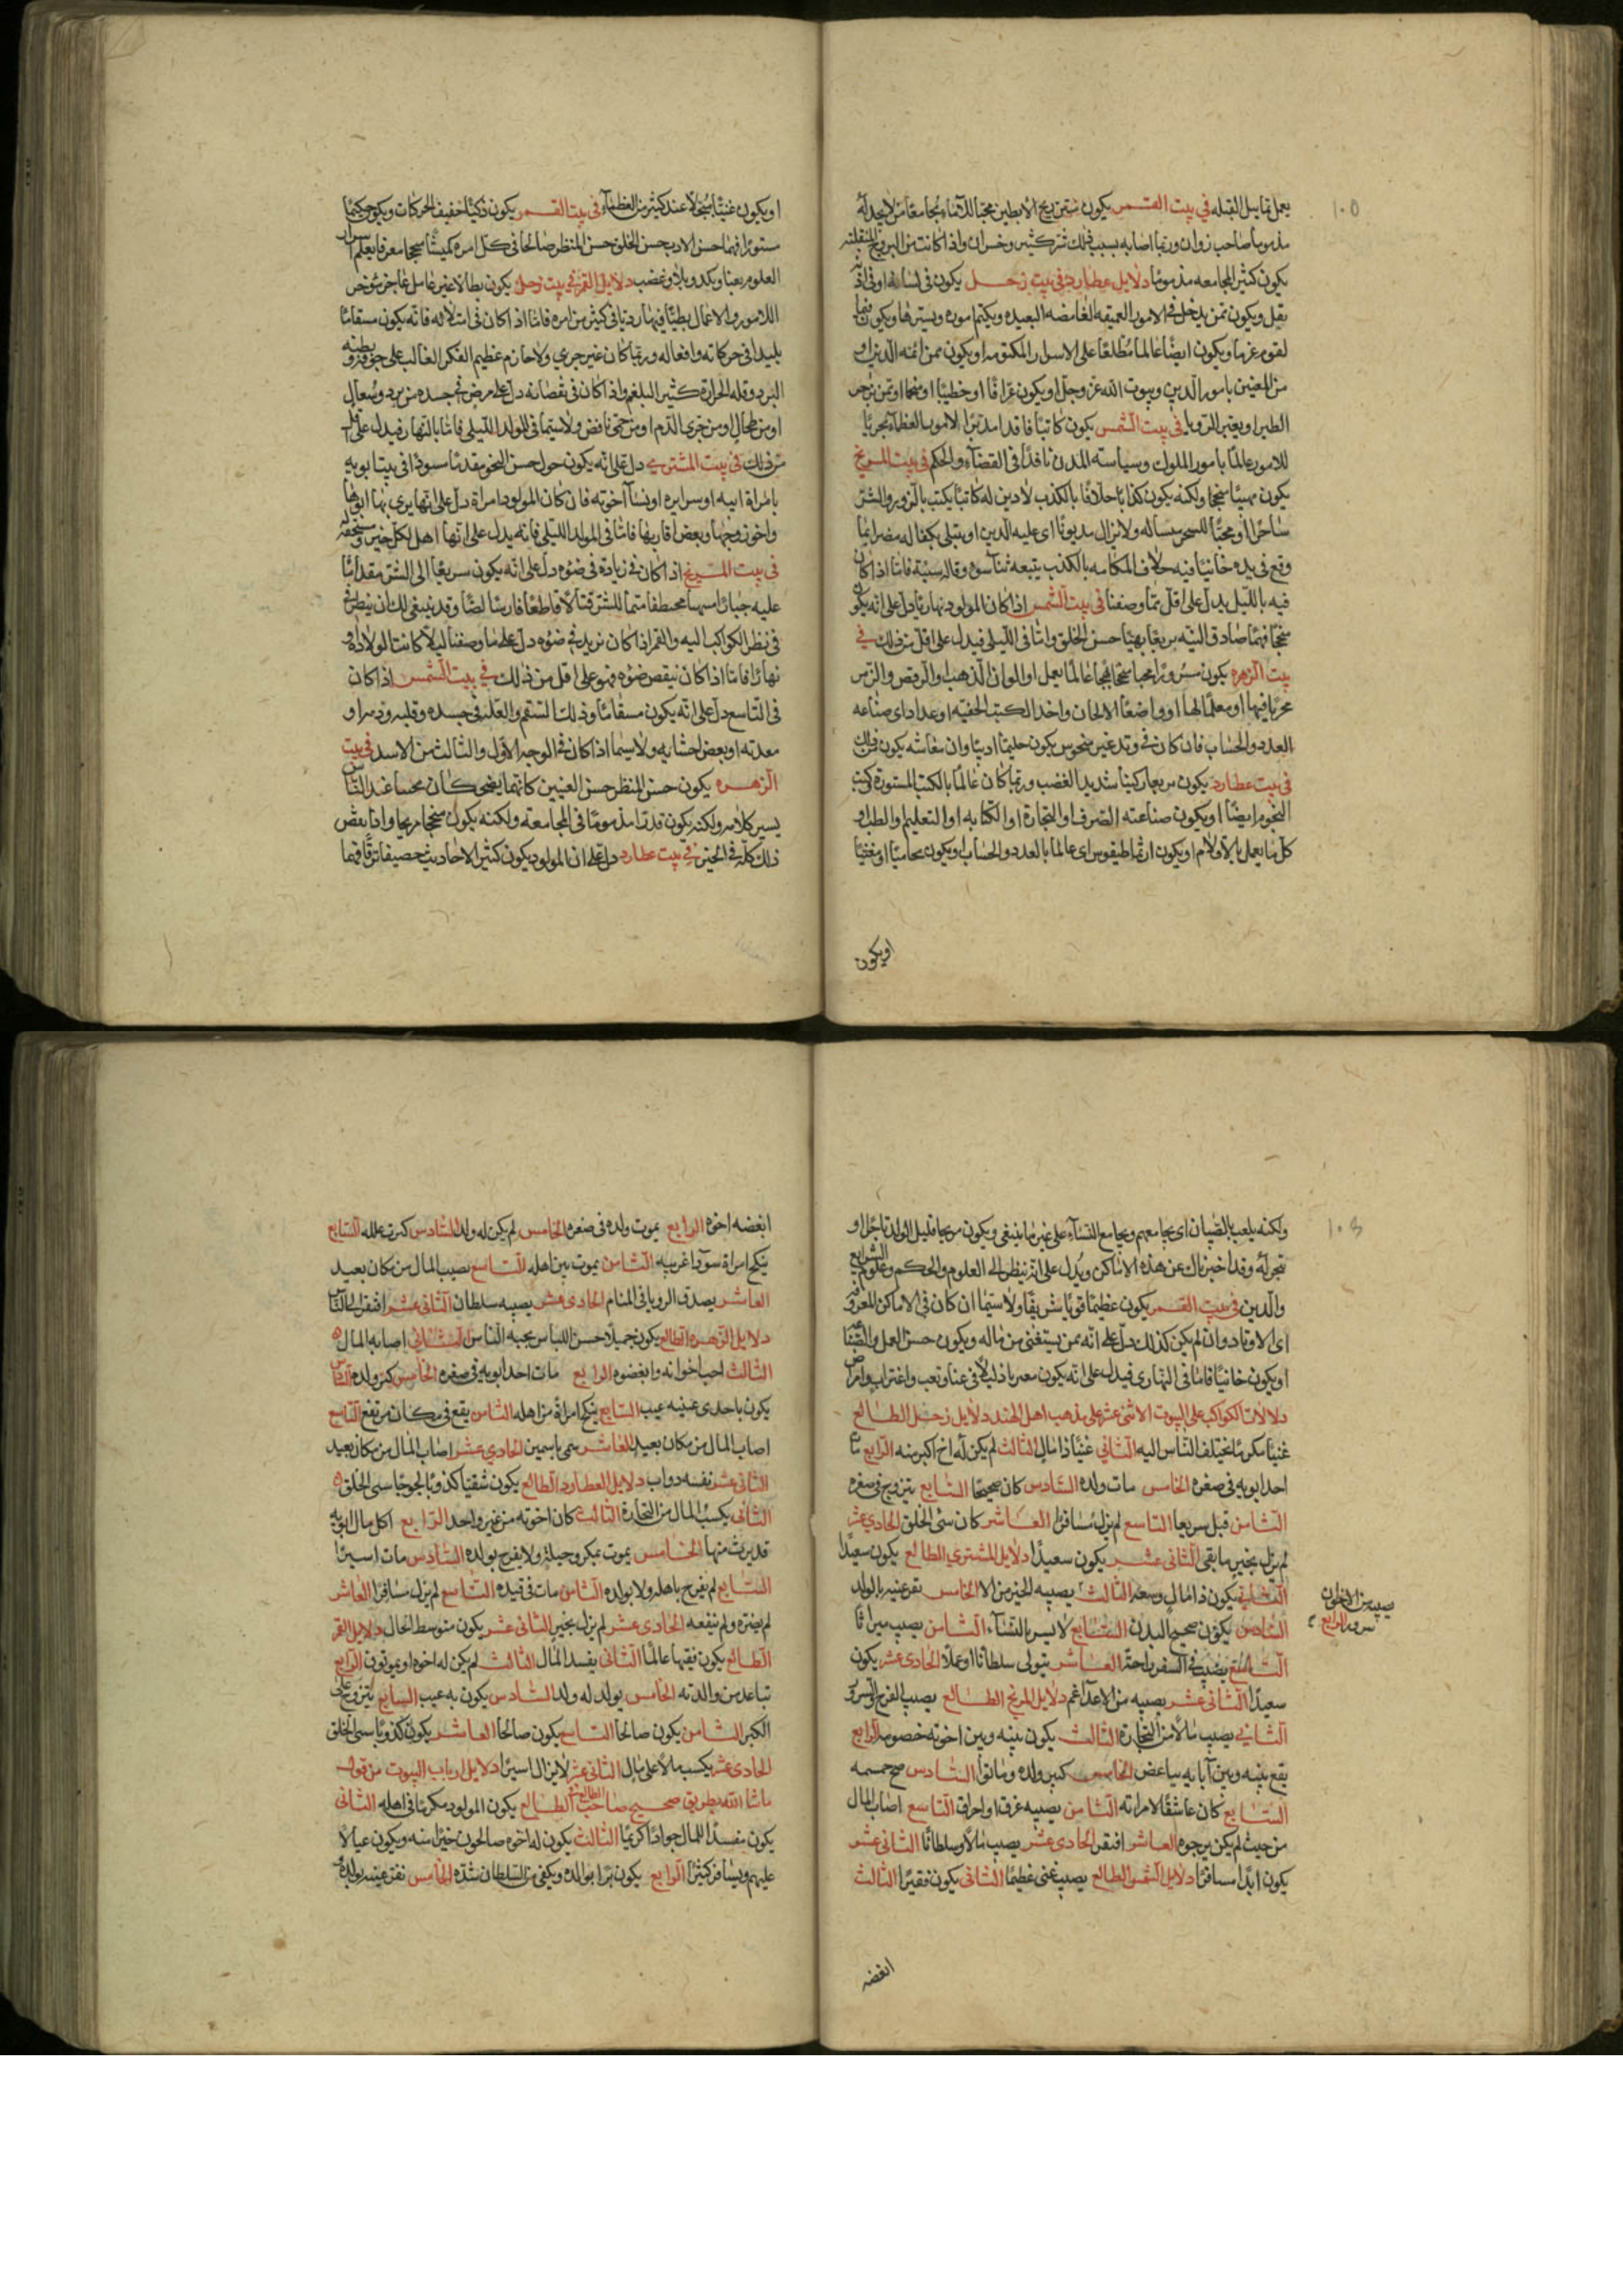 ١٠٥
يعمل تماثيل القبله في بيت القمر يكون منتن ريح الابطين محبا للاماء مجامعا من لا يجد له
مذموما صاحب زوان وربما اصابه بسبب ذلك شر كثير وخسران واذا كانت من البروج المنقلبه
يكون كثير المجامعه مذموما دلايل عطارد في بيت زحل يكون في لسانه او في اذنه
ثقل ويكون ممن يدخل في الامور العميقه الغامضه البعيده ويكتم اموره ويسترها ويكون
لقوم غرباء ويكون ايضا عالما مطلعا على الاسرار المكتومه او يكون ممن ائمة الدين او
من المعنين بامور الدين وبيوت الله عز وجل او يكون عرافا او خطيبا او منجما او ممن يزجر
الطير او يعبر الرؤيا في بيت الشمس يكون كاتبا فاقدا مدبرا لامور العظماء مجربا
للامور عالما بامور الملوك وسياسة المدن نافذا في القضاء والحكم في بيت المريخ
يكون مهيبا سخيا ولكنه يكون كذابا حلافا بالكذب لا دين له كاتبا يكتب بالزور والشر
ساحرا او محبا للسحر ولا يزال مديونا اي عليه الدين او يبتلى بكفاله
وقع في يده خائنا فيه حلاف المكاسه بالكذب يتبعه ثنا سوء وقاله سيئة فاما اذا كان
فيه بالليل يدل على اقل مما وصفنا في بيت الشمس اذا كان المولود نهاريا دل على انه يكون
سخيا فهما صادق النيه سريعا بهيا حسن الخلق واما في الليلي فيدل على اقل من ذلك في
بيت الزهره يكون مسرورا محبا سخيا عالما يعمل او الوان الذهب والرقص والزمر
مجربا فيها او معلما لها او واضعا الالحان واخذ الكتب الخفيه او عداد اي صناعة
العدد والحساب فان كان في وتد غير منحوس يكون حليما اديبا وان معاشه يكون من ذلك
في بيت عطارد يكون سريعا ركينا شديد الغضب وربما كان عالما بالكتب المستورة وكتب
النجوم ايضا او يكون صناعته الصرف او التجارة او الكتابه او التعليم والطب او
كل ما يعمل بالاولام او يكون ارثماطيقوس اي عالما بالعدد والحساب او يكون محاميا او مغنيا
او يكون
او يكون غنيا سخيا لا عند كثير من العظماء في بيت القمر يكون ذكيا خفيف الحركات ويكون حكيما
مستورا فهما حسن الادب حسن الخلق حسن المنظر صالحا في كل امره كيسا سخيا معرفا يعلم اسرار
العلوم بعنا وبكد وبلاء وغضب دلايل القمر في بيت زحل يكون بطالا غير عامل عاجز موخر
اللامور والاعمال بطيئا فيها رديا في كثير من امره فاما اذا كان في امتلائه فانه يكون مسقاما
بليدا في حركاته وافعاله وربما كان غير جري ولا حازم عظيم الفكر الغالب على جوفه وبطنه
البرد وقلة الحرارة كثير البلغم واذا كان في نقصانه دل على مرض في جسده من برد وسعال
او من طحال او من جري الدم او من حمى نافض ولا سيما في المولد الليلي فاما بالنهار فيدل على اقل
من ذلك في بيت المشتري دل على انه يكون حول حسن النحو مقدما مسودا في بيتا ابويه
بامراة ابيه او سراريه او نسا اخوته فان كان المولود امراة دل على انها يرى بها ابوها
واخو زوجها وبعض اقاربها فاما في المولد الليلي فانه يدل على انها اهل لكل خير ومستحقه له
في بيت المريخ اذا كان في زيادة في ضوءه دل على انه يكون سريعا الى الشر مقداما
عليه جبارا قتالا قاطعا فارسا لصا وقد ينبغي لك ان ينظر في
في نظر الكواكب اليه والقمر اذا كان نزيد في ضوءه دل على ما وصفنا ليلا كانت الولادة او
نهارا فاما اذا كان نيقص ضوءه فهو على اقل من ذلك في بيت الشمس اذا كان
في التاسع دل على انه يكون مسقاما وذلك السقم والعله في جسده وقلبه ودمه او
معدته او بعض احشايه ولا سيما اذا كان في الوجه الاول والثالث من الاسد في بيت
الزهره يكون حسن المنظر حسن العينين كانهما يضحكان محبا عند الناس
يسير كلامه ولكنه يكون قذرا مذموما في المجامعه ولكنه يكون سخيا مربحا واذا بعض
ذلك كله في الخير في بيت عطارد دل على ان المولود يكون كثير الاحاديث حصيفا رقا فهما
١٠٦
ولكنه يلعب بالصبيان اي يجامعهم ويجامع النساء على غير ما ينبغي ويكون مربحا قليل الولد تاجرا او
تجر له وقد اخبرناك عن هذه الاماكن ويدل على انه ينظر الى العلوم والحكم وعلوم الشرايع
والدين في بيت القمر يكون عظيما قويا شريفا ولا سيما ان كان في الاماكن المعروفه
اي الاوتاد وان لم يكن كذلك دل على انه ممن يستغنى من ماله ويكون حسن العمل والثناء
او يكون خائنا فاما في النهاري فيدل على انه يكون معربا ذليلا في عنا وتعب واغتراب وامراض
دلالات الكواكب على البيوت الاثنى عشر على مذهب اهل الهند دلايل زحل الطالع
غنيا مكرما يختلف الناس اليه الثاني غنيا ذا مال الثالث لم يكن له اخ اكبر منه الرابع مات
احد ابويه في صغره الخامس مات ولده السادس كان صحيحا السابع يتزوج في صغره
الثامن قبل سريعا التاسع لم يزل مسافرا العاشر كان سئ الخلق الحادي عشر
لم يزل بخير ما بقى الثاني عشر يكون سعيدا دلايل المشتري الطالع يكون سعيدا
الثاني يكون ذا مال وسعه الثالث يصيبه الخير من الا الخامس تقر عينه بالولد
يصيبه من الاخوان
سرور الرابع
السادس يكون صحيح البدن السابع لا يسر بالنساء الثامن يصيب ميراثا
التاسع يصيب في السفر راحة العاشر يتولى سلطانا او عملا الحادي عشر يكون
سعيدا الثاني عشر يصيبه من الاعداء غم دلايل المريخ الطالع يصيب الفرح والسرور
الثاني يصيب مالا من التجارة الثالث يكون بينه وبين اخوته خصومه الرابع
يقع بينه وبين آبايه تباغض الخامس كبر ولده وماتوا السادس صح جسمه
السابع كان عاشقا لامراته الثامن يصيبه غرق او احراق التاسع اصاب المال
من حيث لم يكن يرجوه العاشر افتقر الحادي عشر يصيب مالا وسلطانا الثاني عشر
يكون ابدا مسافرا دلايل الشمس الطالع يصيب غنى عظيما الثاني يكون فقيرا الثالث
ابغضه
ابغضه اخوه الرابع يموت ولده في صغره الخامس لم يكن له ولد السادس كبرت علله السابع
ينكح امراة سوداء غريبه الثامن يموت بين اهله التاسع يصيب المال من مكان بعيد
العاشر يصدق الرويا في المنام الحادي عشر يصيبه سلطان الثاني عشر افتقر الى الناس
دلايل الزهره الطالع يكون جميلا حسن اللباس يحبه الناس الثاني اصابه المال
الثالث احب اخوانه وابغضوه الرابع مات احد ابويه في صغره الخامس كبر ولده السادس
يكون باحدى عينيه عيب السابع ينكح امراة من اهله الثامن يقع في مكان مرتفع التاسع
اصاب المال من مكان بعيد العاشر سمي باسمين الحادي عشر اصاب المال من مكان بعيد
الثاني عشر نفسه دواب دلايل العطارد الطالع يكون شقيا كذوبا لجوجا سئ الخلق
الثاني يكسب المال من التجارة الثالث كان اخوته من غير واحد الرابع اكل مال ابويه
قد يرث منها الخامس يموت بمكر وحيلة ولا يفرح بولده السادس مات اسيرا
السابع لم يفرح باهله ولا بولده الثامن مات في قيده التاسع لم يزل مسافرا العاشر
لم يضره ولم ينفعه الحادي عشر لم يزل بخير الثاني عشر يكون متوسط الحال دلايل القمر
الطالع يكون فقيها عالما الثاني يفسد المال الثالث لم يكن له اخوه او يموتون الرابع
تباعد من والدته الخامس يولد له ولد السادس يكون به عيب السابع يتزوج على
الكبر الثامن يكون صالحا التاسع يكون صالحا العاشر يكون كذوبا سئ الخلق
الحادي عشر يكسب مالا على مال الثاني عشر لا يزال اسيرا دلايل ارباب البيوت من قول
ماشا الله بطريق صحيح صاحب الطالع في الطالع يكون المولود مكرما في اهله الثاني
يكون مفسدا للمال جوادا كريما الثالث يكون له اخوه صالحون خيرا منه ويكون عيالا
عليهم ويسافر كثيرا الرابع يكون برا بوالده ويكفى من السلطان شدة الخامس تقر عينه بولده